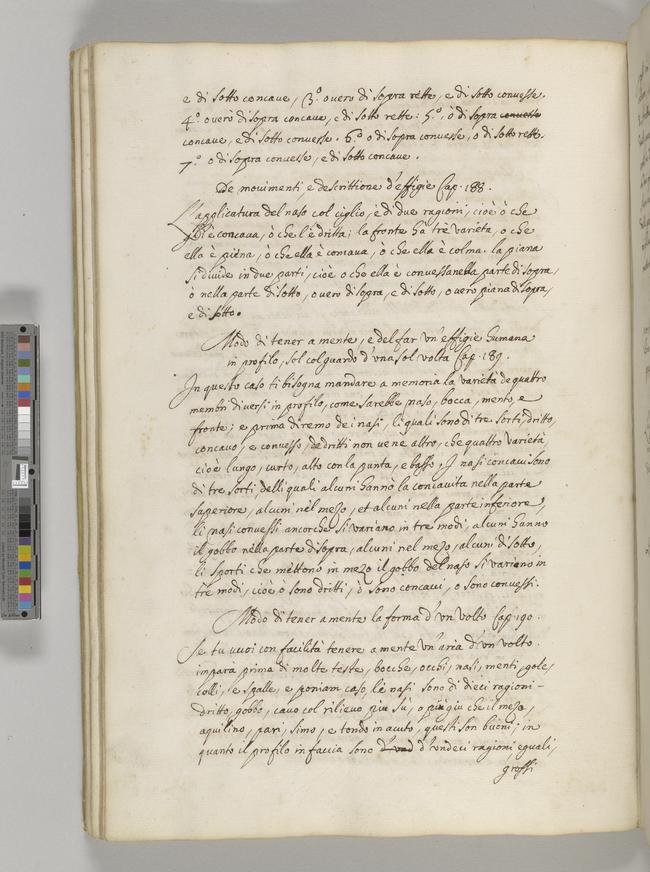 e di sotto concave, 3.º overo di sopra rette, e di sotto convesse.
4.º overo di sopra concave, e di sotto rette: 5.º, ò di sopra convesse
concave, e di sotto convesse. 6.º o di sopra convesse, o di sotto rette.
7.º o di sopra convesse, e di sotto concave.
De movimenti e descrittione d'effigie Cap. 188.
L'applicatura del naso col ciglio, è di due ragioni, cioè ò che
è concava, ò che l'è dritta: la fronte hà trè varietà, o che
ella è piena, ò che ella è concava, ò che ella è colma. la piana
si divide in due parti, cioè o che ella è convessa nella parte di sopra,
ò nella parte di sotto, overo di sopra, e di sotto, overo piana di sopra,
e di sotto.
Modo di tener a mente, e del far un'effigie humana
in profilo, sol col guardo d'una sol volta Cap. 189.
In questo caso ti bisogna mandare a memoria la varietà de quattro
membri diversi in profilo, come sarebbe naso, bocca, mento, e
fronte; e prima diremo de i nasi, li quali sono di tre sorti, dritto,
concavo, e convesso, de dritti non vene altro, che quattro varietà,
cioè lungo, curto, alto con la punta, e basso, I nasi concavi sono
di tre sorti delli quali alcuni hanno la concavità nella parte
superiore, alcuni nel mezo, et alcuni nella parte inferiore,
li nasi convessi ancorche si variano in tre modi, alcuni hanno
il gobbo nella parte di sopra, alcuni nel mezo, alcuni di sotto,
li sporti che mettono in mezo il gobbo del naso si variano in
tre modi, cioè o sono dritti, ò sono concavi, o sono convessi.
Modo di tener a mente la forma d'un volto Cap. 190.
Se tu vuoi con facilità tenere a mente un'aria d'un volto
impara prima di molte teste, bocche, occhi, nasi, menti, gole,
colli, e spalle, e poniam caso, li nasi sono di dieci ragioni-
dritto, gobbo, cavo col rilievo più sù, o più giu che il mezo,
aquilino, pari, simo, e tondo in acuto, questi son buoni; in
quanto il profilo in faccia sono d'undeci ragioni, eguali,
grossi